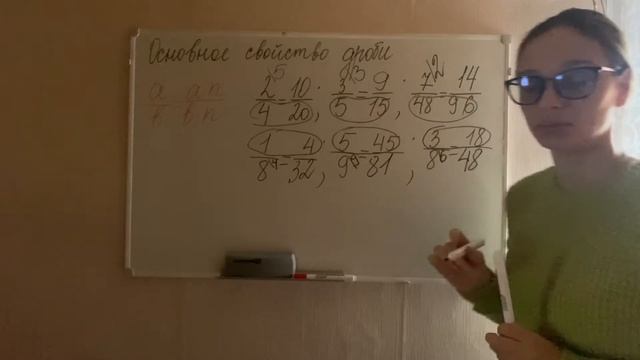 Основное свойство дроби
a/b an/bn 2/4 ·5 = 10/20, 3/5 ·3 = 9/15, 7/48 ·2 = 14/96
1/8 ·4 = 4/32, 5/9 ·9 = 45/81, 3/8 ·6 = 18/48